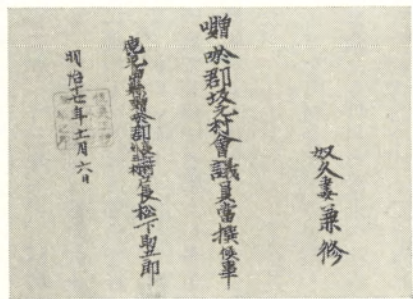 奴久妻兼修
囎唹郡坂元村會議員當撰候事
鹿児島縣囎唹郡 長松下 五郎
明治十七年十一月六日